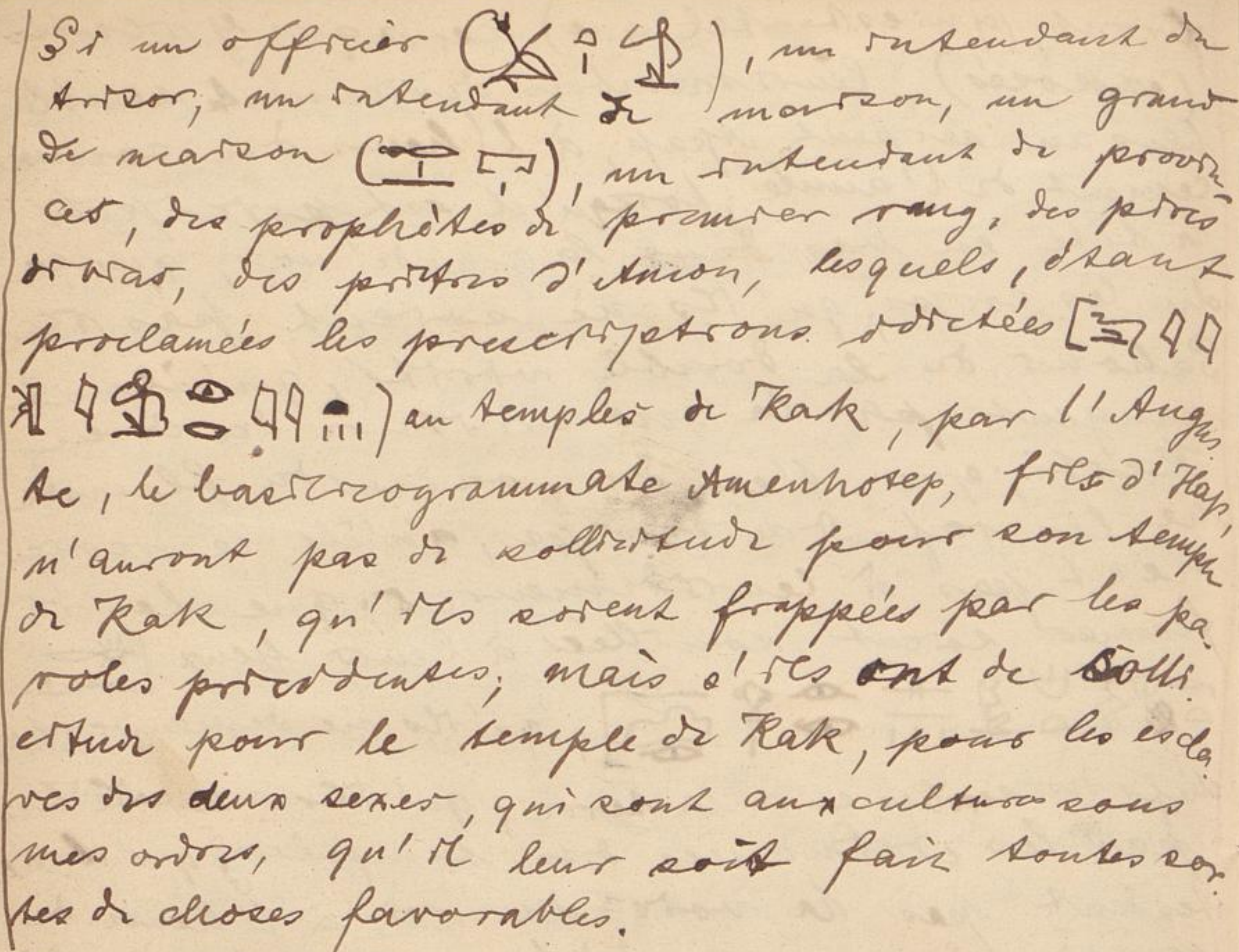 Si un officier ( ), un intendant du
trésor, un intendant de maison, un grand
de maison ( ), un intendant de provin
ces, des prophètes de premier rang, des pères
divins, des prêtres d'Amon, lesquels, étant
proclamées les prescriptions édictées [
) au temples de Kak, par l'Augus
te, le basilicogrammate Amenhotep, fils d'Hap,
n'auront pas de sollicitude pour son temple
de Kak, qu'ils soient frappées par les pa-
roles précédentes; mais s'ils ont de solli-
citude pour le temple de Kak, pour les escla-
ves des deux sexes, qui sont aux cultures sous
mes ordres, qu'il leur soit fait toutes sor-
tes de choses favorables.